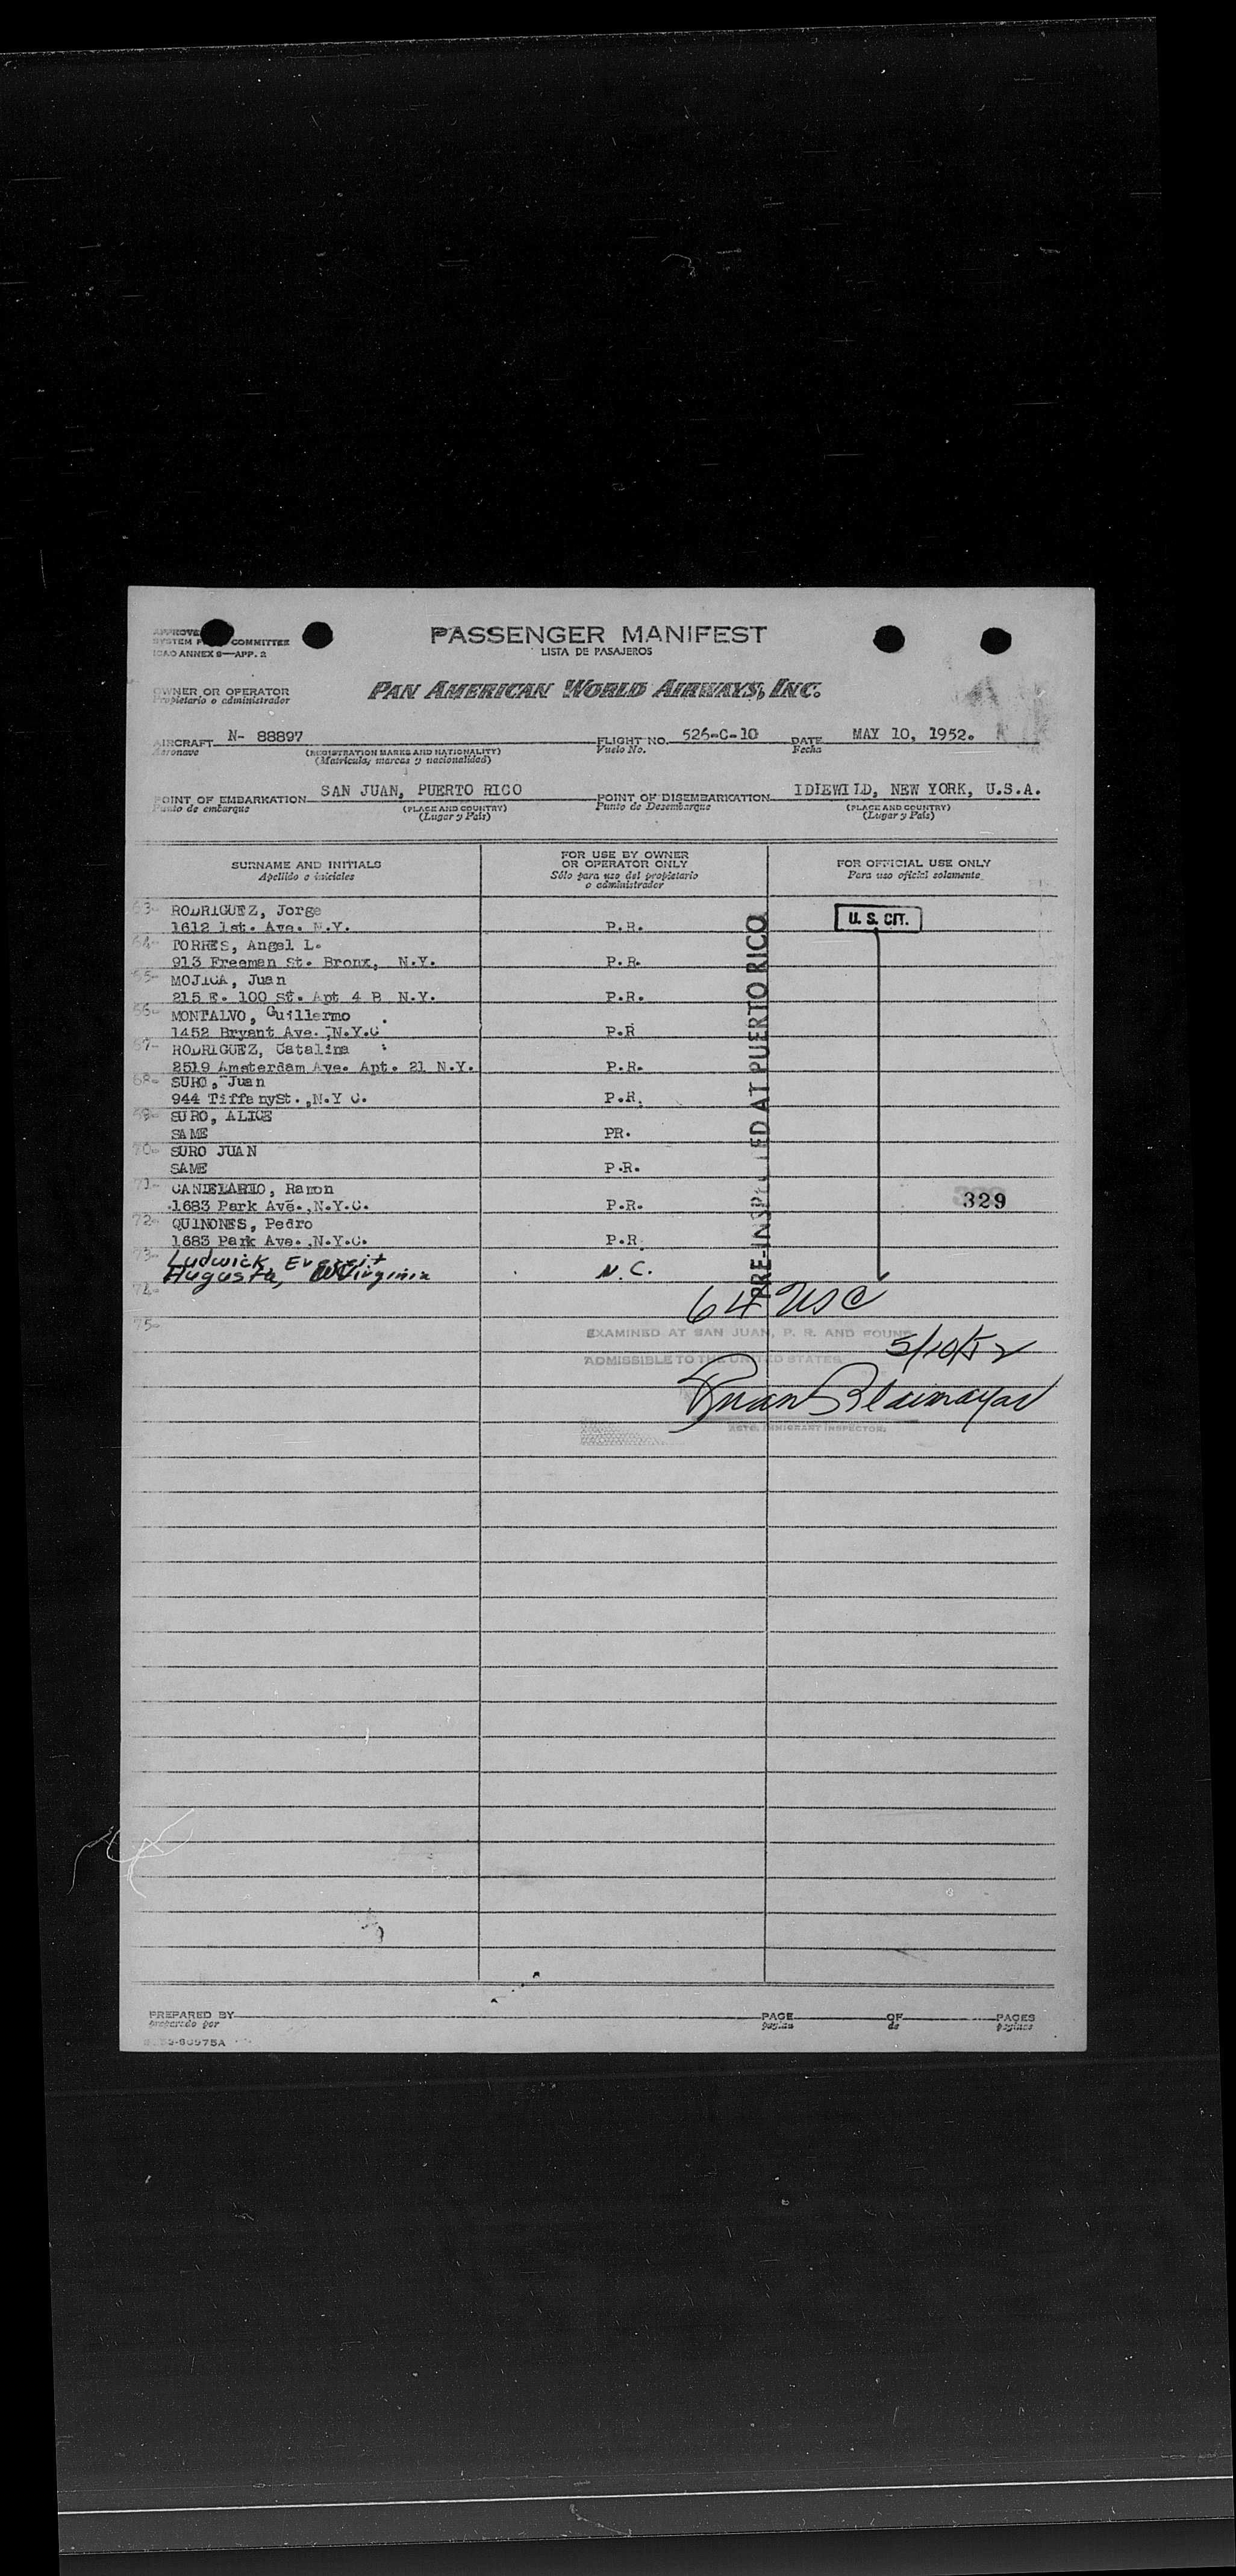 PASSENGER MANIFEST
LISTA DE PASAJEROS
COMMITTEE
ICAO ANNEX 9—APP. 2
OWNER OR OPERATOR
Propietario o administrador
PAN AMERICAN WORLD AIRWAYS, INC.
AIRCRAFT N- 88897 FLIGHT NO. 526-C-10 DATE MAY 10, 1952.
Aeronave (REGISTRATION MARKS AND NATIONALITY) Vuelo No. Fecha
(Matricula, marcas y nacionalidad)
POINT OF EMBARKATION SAN JUAN, PUERTO RICO POINT OF DISEMBARKATION IDIEWILD, NEW YORK, U.S.A.
Punto de embarque (PLACE AND COUNTRY) Punto de Desembarque (PLACE AND COUNTRY)
(Lugar y País) (Lugar y País)
SURNAME AND INITIALS FOR USE BY OWNER OR OPERATOR ONLY FOR OFFICIAL USE ONLY
Apellido e iniciales Sólo para uso del propietario o administrador Para uso oficial solamente
63- RODRIGUEZ, Jorge U. S. CIT.
1612 1st. Ave. N.Y. P.R.
64- TORRES, Angel L.
913 Freeman St. Bronx, N.Y. P.R.
65- MOJICA, Juan
215 E. 100 St. Apt 4 B N.Y. P.R.
66- MONTALVO, Guillermo
1452 Bryant Ave. N.Y.C P.R
67- RODRIGUEZ, Catalina
2519 Amsterdam Ave. Apt. 21 N.Y. P.R.
68- SURO, Juan
944 TiffanySt.,N.Y C. P.R.
69- SURO, ALICE
SAME PR.
70- SURO JUAN
SAME P.R.
71- CANDELARIO, Ramon
1683 Park Ave.,N.Y.C. P.R. 329
72- QUINONES, Pedro
1683 Park Ave. ,N.Y.C. P.R.
73- Ludwick,
Augusta, W Virginia N.C.
74-
75-
PRE-INSPECTED AT PUERTO RICO
64 USC
EXAMINED AT SAN JUAN, P. R. AND FOUND
5/10/52
ADMISSIBLE TO THE UNITED STATES
IMMIGRANT INSPECTOR
PREPARED BY PAGE OF PAGES
preparado por pagina de paginas